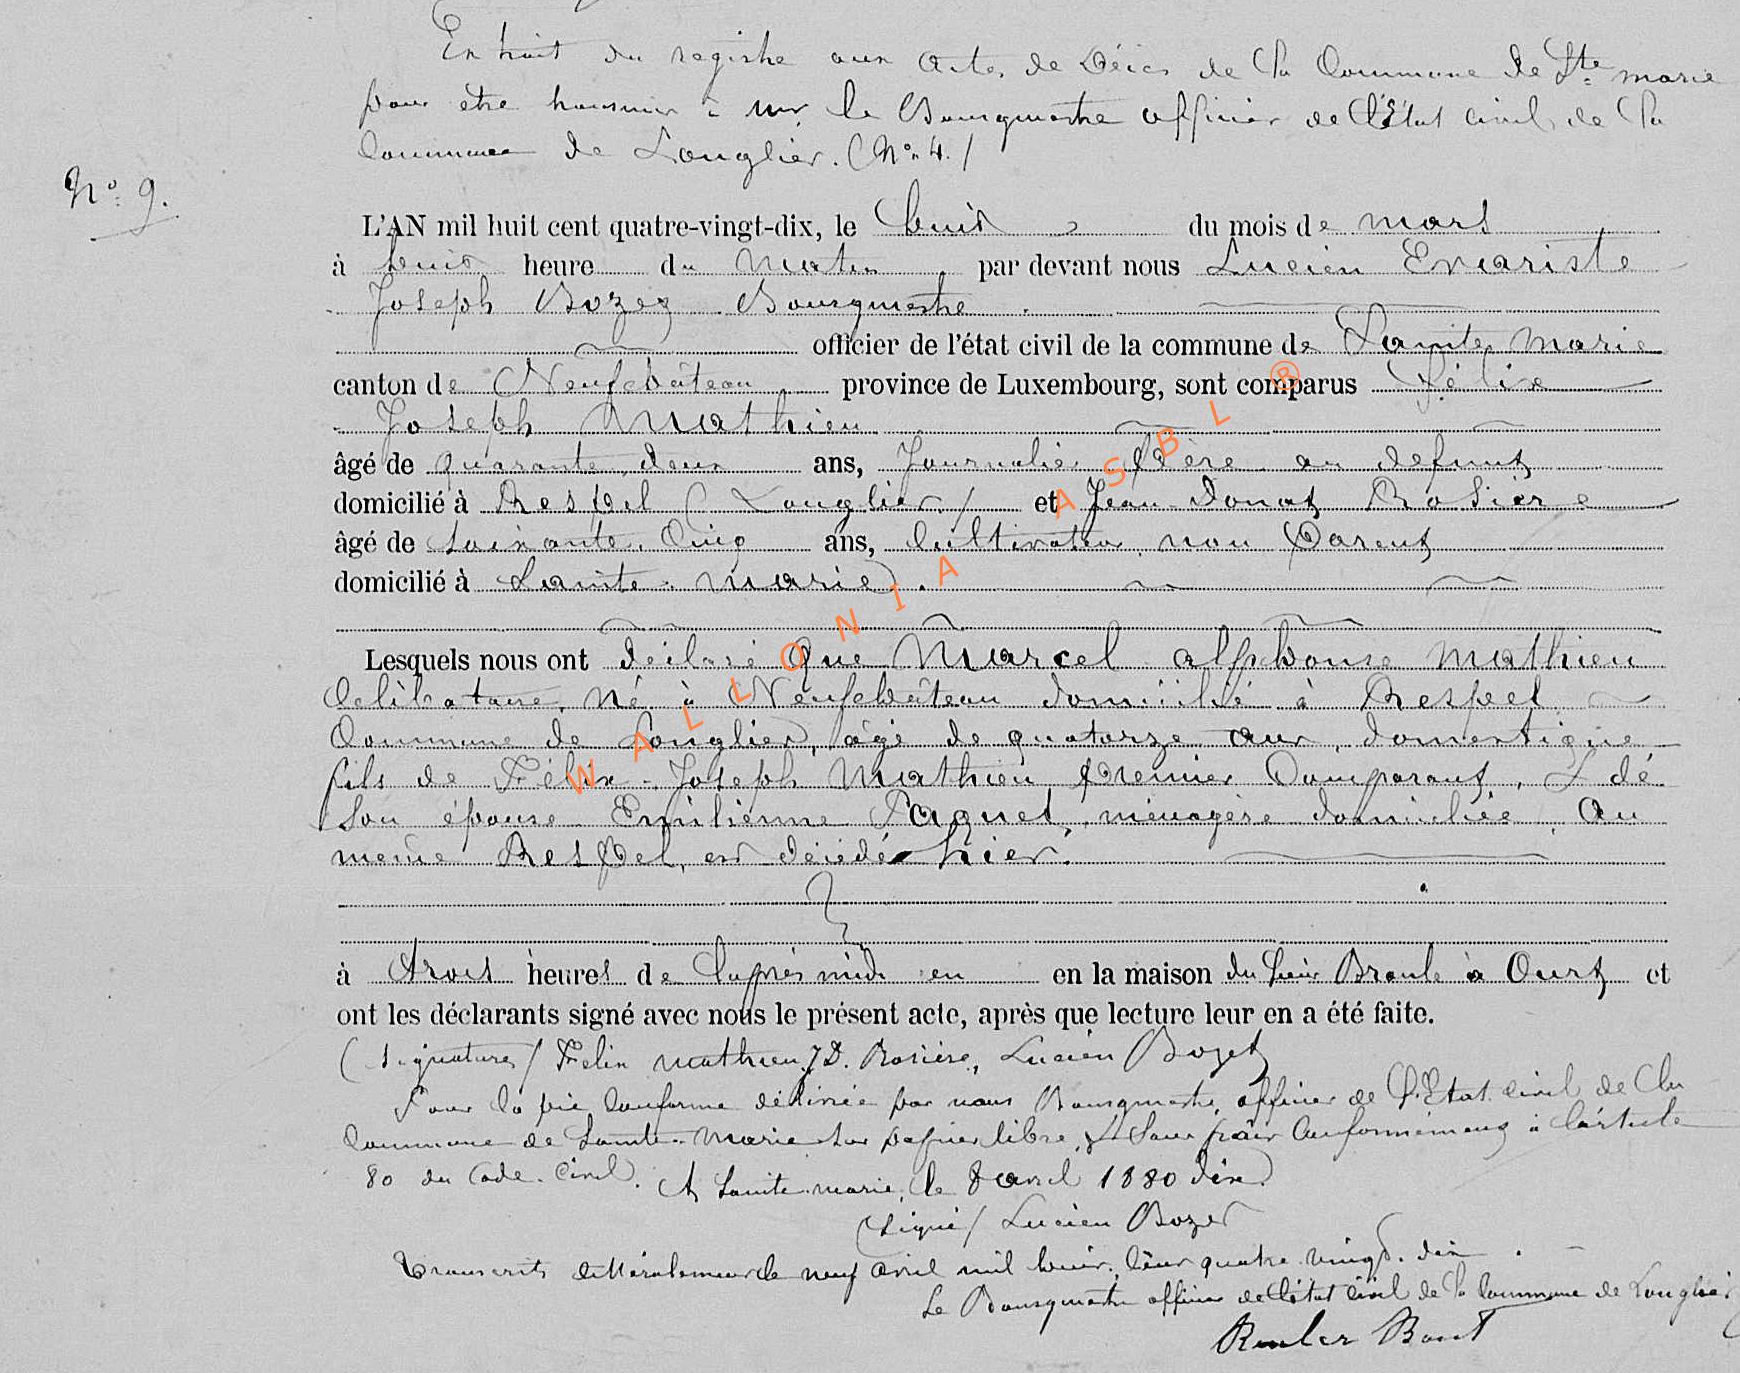 Extrait du registre aux actes de Décès de la Commune de Ste marie
pour être transmis à mr le Bourgmestre officier de l'Etat civil de la
Commune de Longlier. (No. 4.)
No. 9.
L'AN mil huit cent quatre-vingt-dix, le huit du mois de mars
à huit heure du matin par devant nous Lucien Evariste
Joseph Bozet Bourgmestre
officier de l'état civil de la commune de Sainte marie
canton de Neufchâteau province de Luxembourg, sont comparus Félix
Joseph Mathieu
âgé de quarante deux ans, Journalier père du defunt
domicilié à Respel (Longlier) et Jean Donat Rosière
âgé de soixante. Cinq ans, Cultivateur, non Parent
domicilié à Sainte-marie.
Lesquels nous ont déclaré que Marcel alphonse Mathieu
Célibataire, né à Neufchâteau domicilié à Respelt
Commune de Longlier, âgé de quatorze ans, domestique
fils de Félix-Joseph Mathieu premier Comparant, & de
Son épouse Emilienne Paquet, ménagère domiciliée, au
même Respel, est décédé hier.
à trois heures de l'après midi en en la maison du sieur Braule à Ourt et
ont les déclarants signé avec nous le présent acte, après que lecture leur en a été faite.
(signatures) Felix Mathieu, J D. Rosière, Lucien Bozet
Pour Copie Conforme délivrée par nous Bourgmestre, officier de l'Etat civil de la
Commune de Sainte-Marie sur papier libre & sans frais Conformément à l'article
80 du Code Civil. A Sainte-marie, le 8 avril 1880 dix
(signé) Lucien Bozet
Transcrit littéralement le neuf avril mil huit cent quatre vingt. dix
Le Bourgmestre officier de l'état civil de la Commune de Longlier
WALLONIA ASBL ®